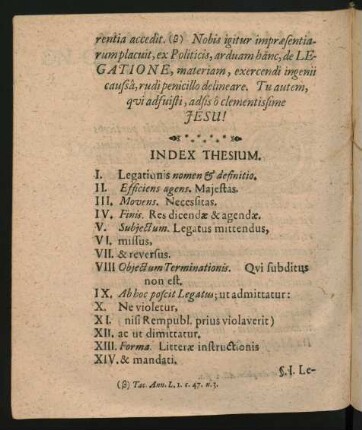 rentia accedit. (β) Nobis igitur impræsentia-
rum placuit, ex Politicis, arduam hánc, de LE-
GATIONE, materiam, exercendi ingenii
caussâ, rudi penicillo delineare. Tu autem,
qvi adfuisti, adsis ô clementissime
JESU!
INDEX THESIUM.
I. Legationis nomen & definitio.
II. Efficiens agens. Majestas.
III. Movens. Necessitas.
IV. Finis. Res dicendæ & agendæ.
V. Subjectum. Legatus mittendus,
VI. missus,
VII. & reversus.
VIII Objectum Terminationis. Qvi subditus
non est.
IX. Ab hoc poscit Legatus; ut admittatur:
X. Ne violetur,
XI. nisi Rempubl. prius violaverit)
XII. ac ut dimittatur.
XIII. Forma. Litteræ instructionis
XIV. & mandati.
§. I. Le-
(β) Tac. Ann. L. 1. c. 47. n. 3.